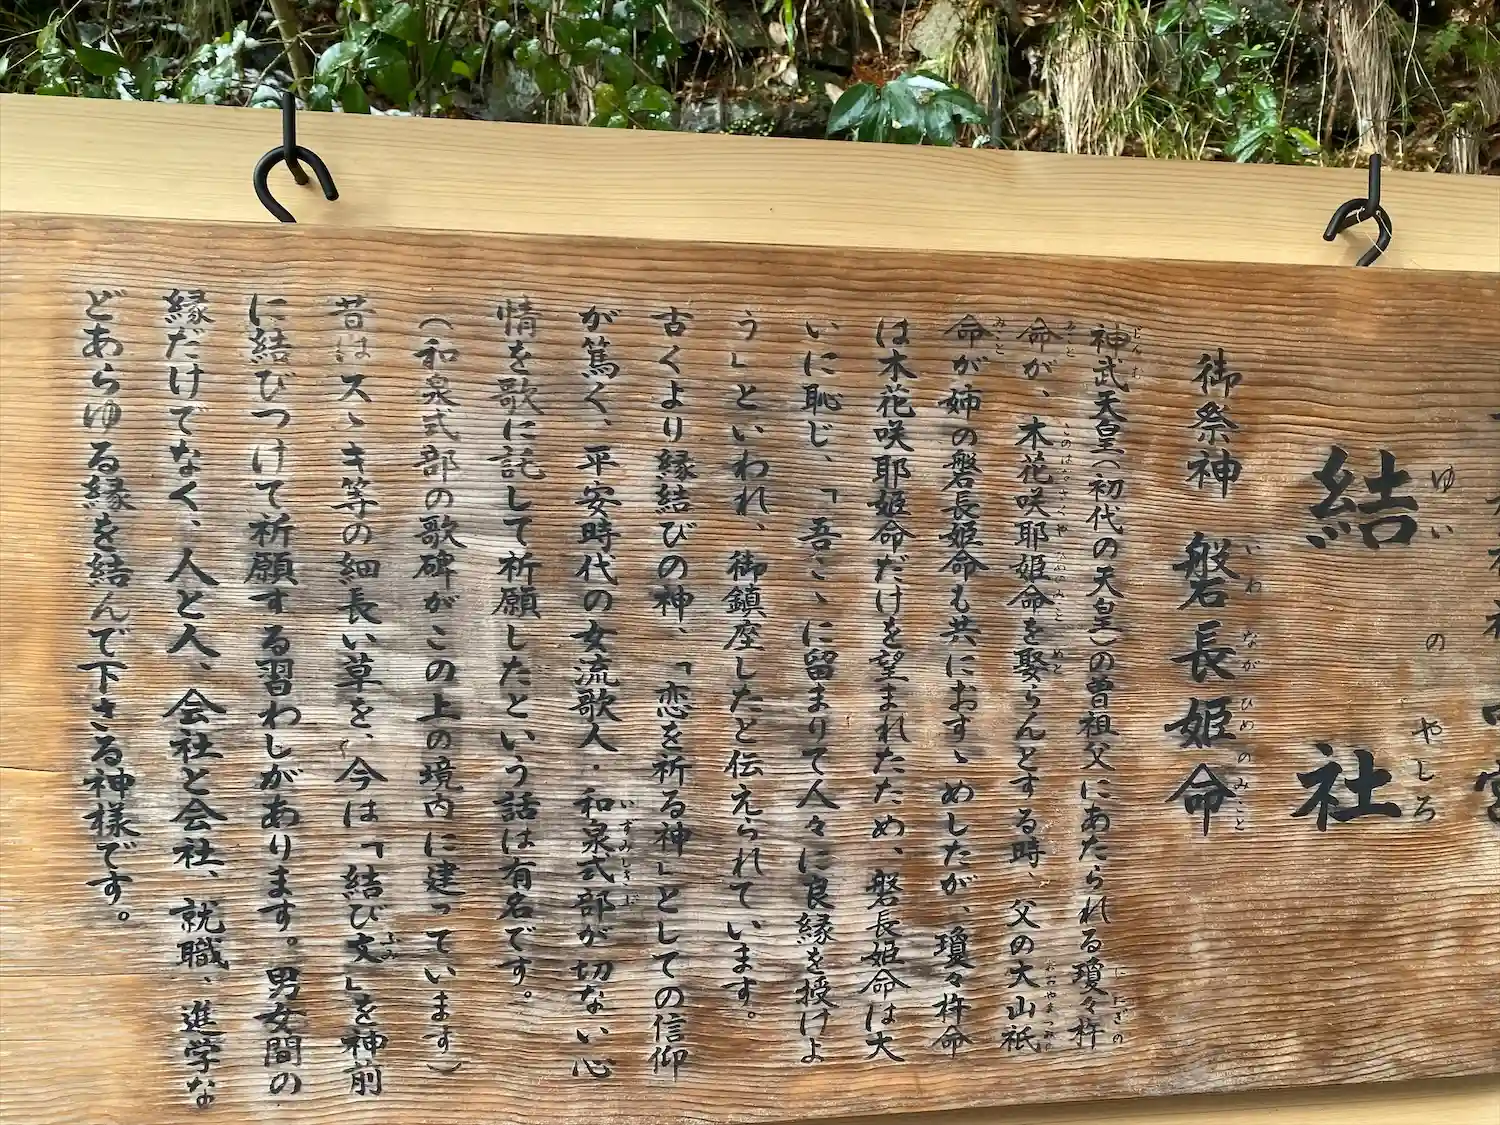 結社
ゆいのやしろ
御祭神 磐長姫命
いわながひめのみこと
神武天皇(初代の天皇)の曽祖父にあたられる瓊々杵
命が、木花咲耶姫命を娶らんとする時、父の大山祇
命が姉の磐長姫命も共におすゝめしたが、瓊々杵命
は木花咲耶姫命だけを望まれたため、磐長姫命は大
いに恥じ、「吾こゝに留まりて人々に良縁を授けよ
う」といわれ、御鎮座したと伝えられています。
古くより縁結びの神、「恋を祈る神」としての信仰
が篤く、平安時代の女流歌人・和泉式部が切ない心
情を歌に託して祈願したという話は有名です。
(和泉式部の歌碑がこの上の境内に建っています)
昔はスゝキ等の細長い草を、今は「結び文」を神前
に結びつけて祈願する習わしがあります。男女間の
縁だけでなく、人と人、会社と会社、就職、進学な
どあらゆる縁を結んで下さる神様です。